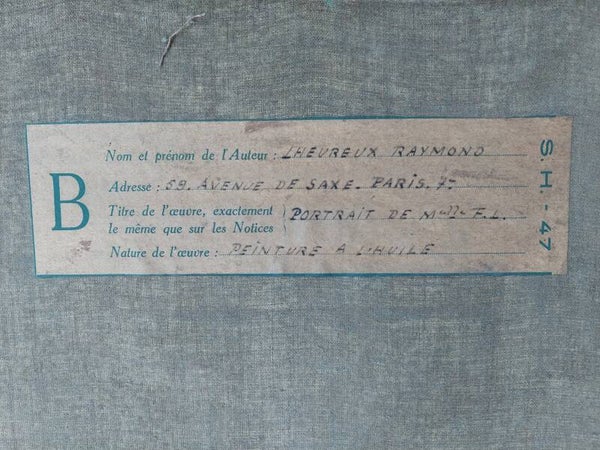 B
Nom et prénom de l'Auteur : LHEUREUX RAYMOND
Adresse : 59. AVENUE DE SAXE. PARIS. 7e
Titre de l'œuvre, exactement le même que sur les Notices } PORTRAIT DE Melle F. L.
Nature de l'œuvre : PEINTURE A L'HUILE
S. H. - 47